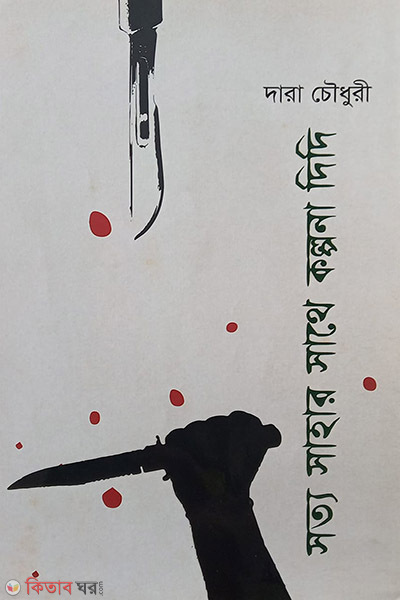 দারা চৌধুরী
সত্য সাহার সাথে কল্পনা দিদি
কিতাব ঘর.com